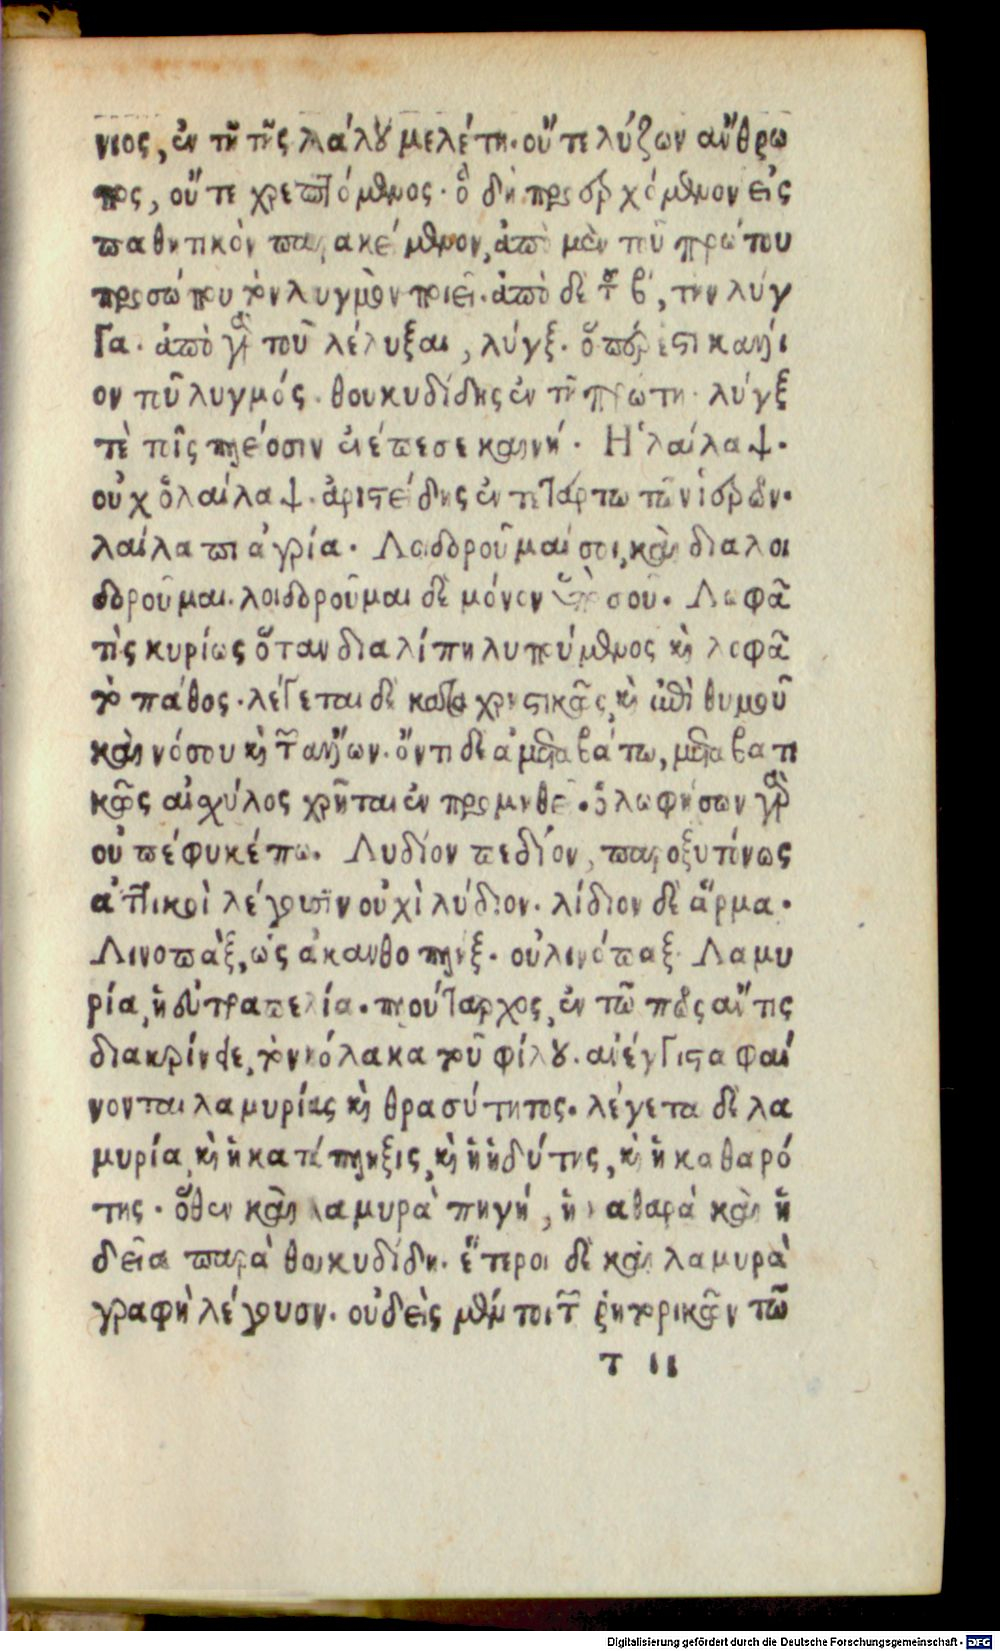 νιος, ἐν τῇ τῆς λάλου μελέτῃ. οὔτε λύζων ἄνθρω
πος, οὔτε χρεπτόμενος. ὃ δὴ προσερχόμενον εἰς
παθητικὸν παρακείμενον, ἀπὸ μὲν τοῦ πρώτου
προσώπου τὸν λυγμὸν ποιεῖ. ἀπὸ δὲ τοῦ β΄, τὴν λύγ
γα. ἀπὸ γὰρ τοῦ λέλυξαι, λύγξ. ὅπερ ἐστὶ
ον τοῦ λυγμός. θουκυδίδης ἐν τῇ πρώτῃ. λύγξ
τὲ τοῖς πλέοσιν ἐνέπεσε καινή. Ἡ λαίλαψ.
οὐχ ὁ λαίλαψ. ἀριστείδης ἐν τετάρτῳ τῶν ἱερῶν.
λαίλαπι ἀγρία. Λοιδοροῦμαί σοι, καὶ διαλοι
δοροῦμαι. λοιδοροῦμαι δὲ μόνον ὑπὸ σοῦ. Λωφᾶ
τὶς κυρίως ὅταν διαλίπῃ λυπούμενος καὶ λωφᾶ
τὸ πάθος. λέγεται δὲ καταχρηστικῶς, καὶ ἐπὶ θυμοῦ
καὶ νόσου καὶ τῶν ἄλλων. ὄντι δὲ ἀμεταβάτῳ, μεταβατι
κῶς αἰσχύλος χρῆται ἐν προμηθεῖ. ὁ λωφήσων γὰρ
οὐ πέφυκέ πω. Λυδίον πεδίον, παροξυτόνως
ἀττικοὶ λέγουσιν οὐχὶ λύδιον. λίδιον δὲ ἅρμα.
Λινοπλὴξ, ὡς ἀκανθοπλήξ. οὐ λινόπαξ. Λαμυ
ρία, ἡ εὐτραπελία. πλούταρχος, ἐν τῷ πῶς ἄν τις
διακρίνῃε, τὸν κόλακα τοῦ φίλου. αἱ ἔγγιστα φαί
νονται λαμυρίας καὶ θρασύτητος. λέγεται δὲ λα
μυρία, καὶ ἡ κατάπληξις, καὶ ἡ ἡδύτης, καὶ ἡ καθαρό
της. ὅθεν καὶ λαμυρὰ πηγή, ἡ καθαρὰ καὶ ἡ
δεῖα παρὰ θουκυδίδῃ. ἕτεροι δὲ καὶ λαμυρὰ
γραφὴ λέγουσιν. οὐδεὶς μέντοι τῶν ῥητορικῶν τῷ
τ ιι
Digitalisierung gefördert durch die Deutsche Forschungsgemeinschaft - DFG